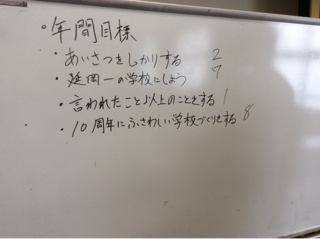 ・年間目標
・あいさつをしかりする 2
・延岡一の学校にしよう 7
・言われたこと以上のことをする 1
・10周年にふさわしい学校づくりをする 8